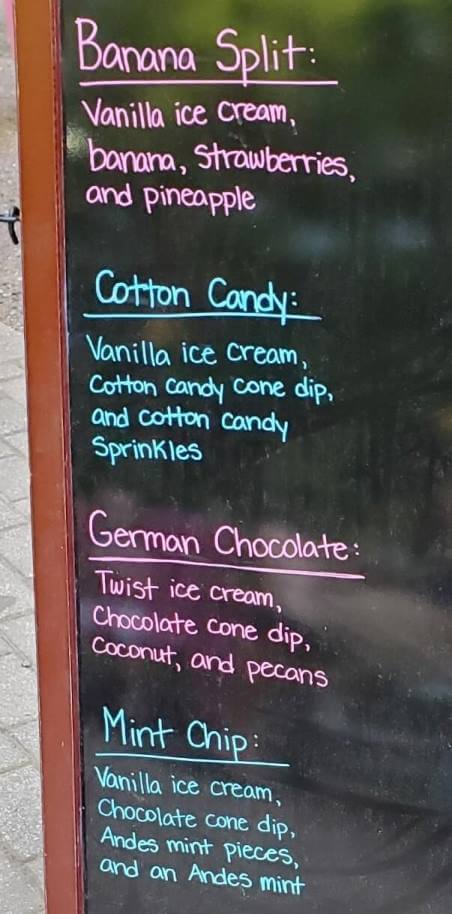 Banana Split:
Vanilla ice cream,
banana, strawberries,
and pineapple
Cotton Candy:
Vanilla ice cream,
Cotton candy cone dip,
and cotton candy
Sprinkles
German Chocolate:
Twist ice cream,
Chocolate cone dip,
Coconut, and pecans
Mint Chip:
Vanilla ice cream,
Chocolate cone dip,
Andes mint pieces,
and an Andes mint